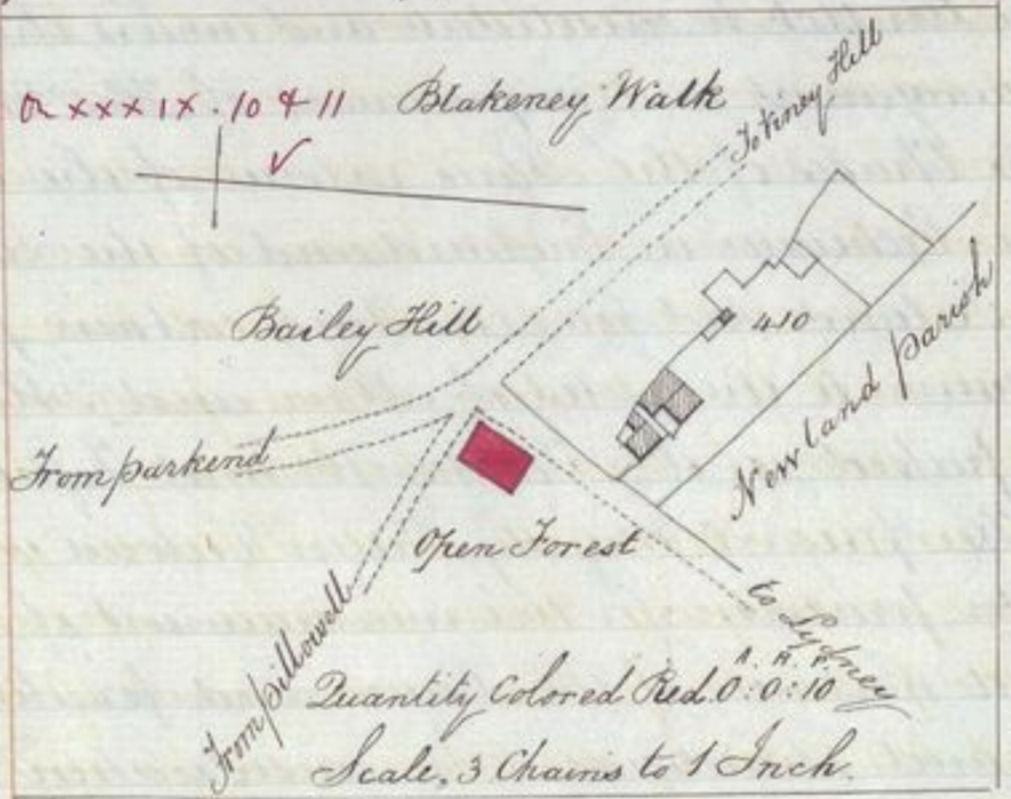 XXXIX. 10 & 11
Blakeney Walk
To Viney Hill
Bailey Hill
410
Newland parish
From parkend
Open Forest
From pillowell
to Lydney
A. R. P.
Quantity Colored Red. 0:0:10
Scale, 3 Chains to 1 Inch.